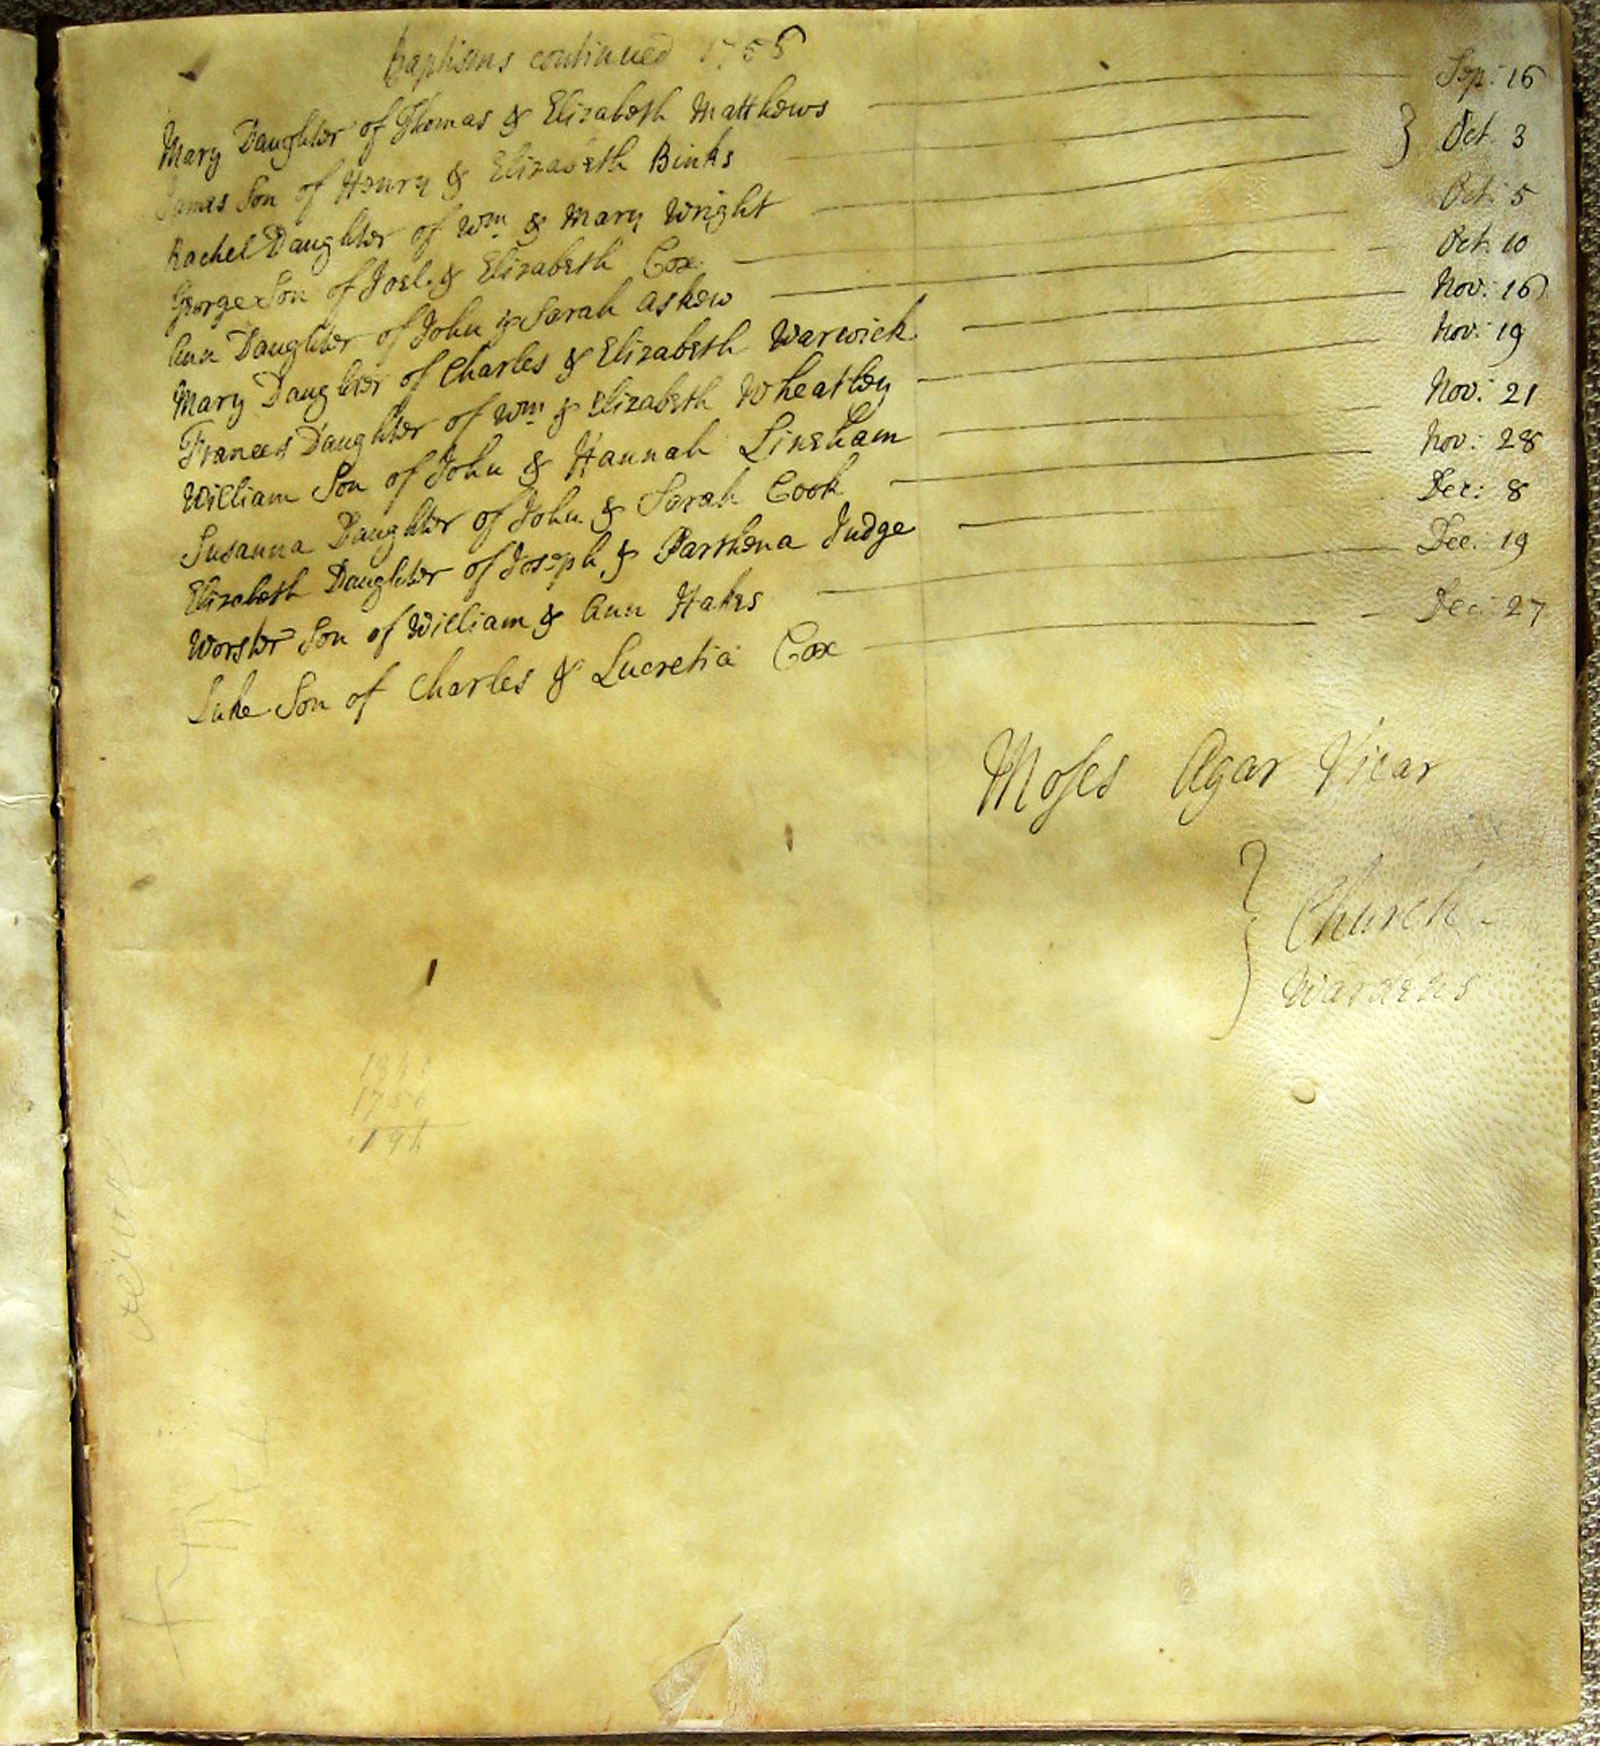 Baptisms continued 1756
Mary Daughter of Thomas & Elizabeth Matthews Sep: 16
James Son of Henry & Elizabeth Binks } Oct. 3
Rachel Daughter of Wm & Mary Wright
George Son of Joel & Elizabeth Cox Oct: 5
Ann Daughter of John & Sarah Askew Oct: 10
Mary Daughter of Charles & Elizabeth Warwick Nov: 16
Frances Daughter of Wm & Elizabeth Wheatley Nov: 19
William Son of John & Hannah Lineham Nov: 21
Susanna Daughter of John & Sarah Cook Nov: 28
Elizabeth Daughter of Joseph & Parthena Judge Dec: 8
Worster Son of William & Ann Hakes Dec: 19
Luke Son of Charles & Lucretia Cox Dec: 27
Moses Agar Vicar
} Church-
Wardens
1756